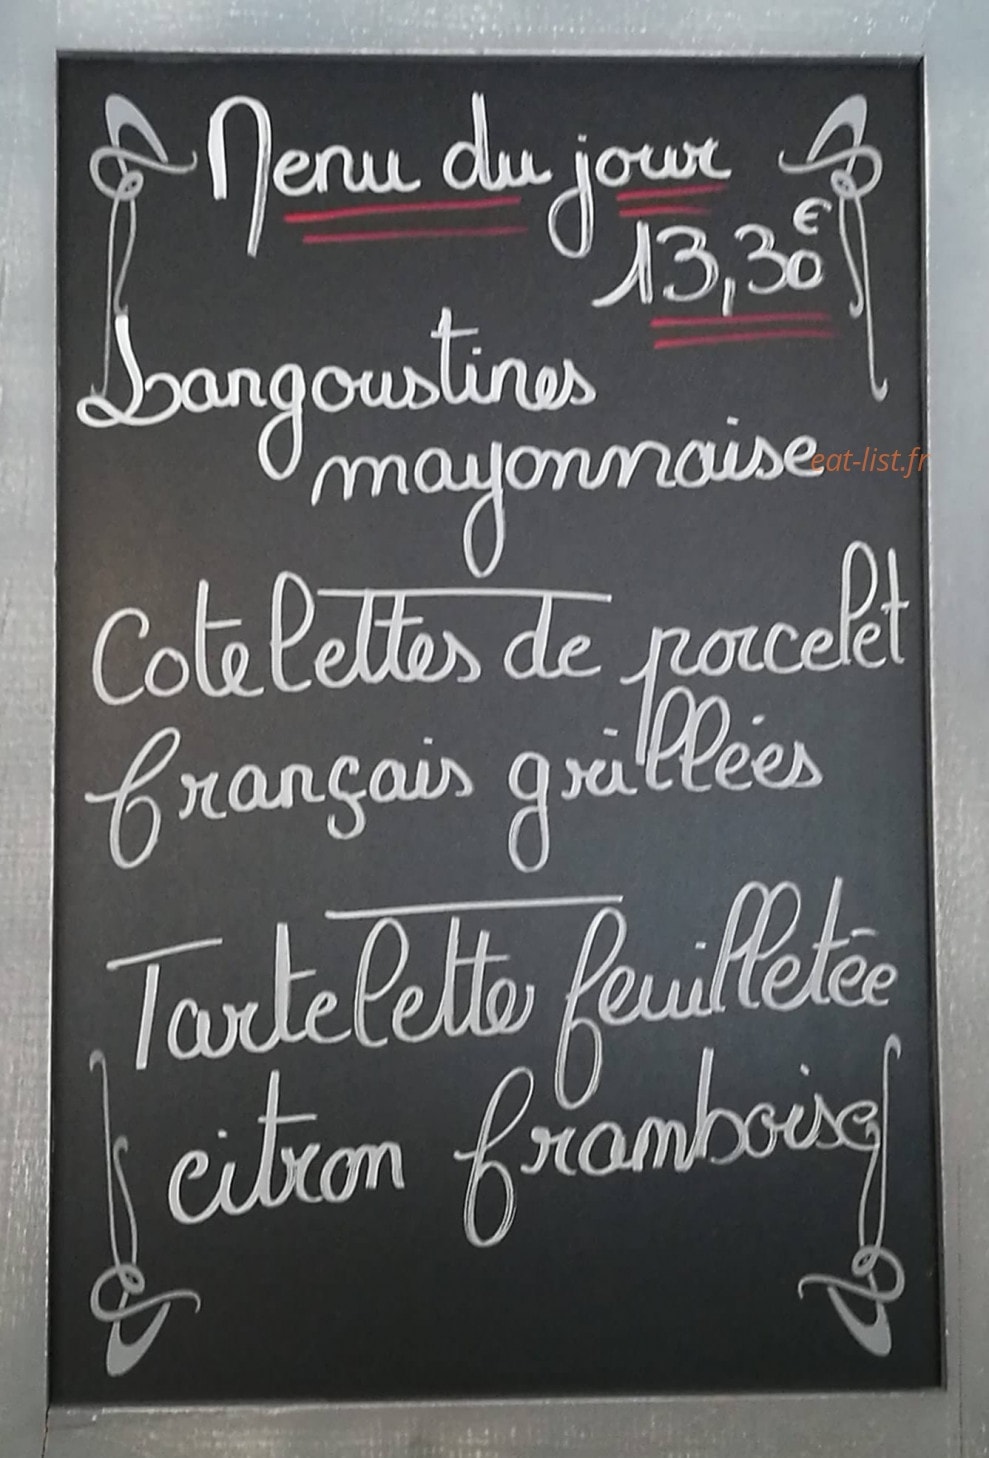 Menu du jour
13,30€
Langoustines
mayonnaise
eat-list.fr
Cotelettes de porcelet
français grillées
Tartelette feuilletée
citron framboise